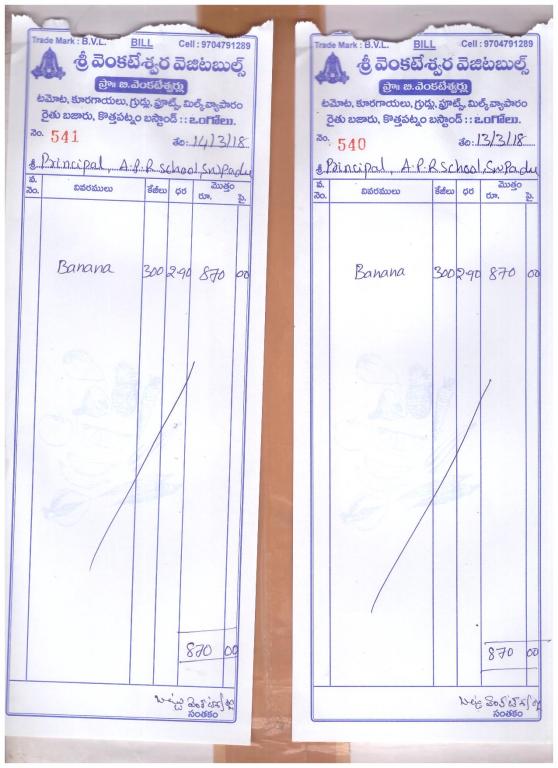 Trade Mark : B.V.L. BILL Cell : 9704791289
శ్రీ వెంకటేశ్వర వెజిటబుల్స్
ప్రొః బి.వెంకటేశ్వర్లు
టమోట, కూరగాయలు, గ్రుడ్లు, ఫ్రూట్స్, మిల్క్ వ్యాపారం
రైతు బజారు, కొత్తపట్నం బస్టాండ్ :: ఒంగోలు.
నెం. 541 తేది: 14/3/18
శ్రీ Principal, A.P.R School, SnPadu
వ. నెం. వివరములు కేజీలు ధర మొత్తం రూ. పై.
Banana 300 2-90 870 00
870 00
సంతకం
Trade Mark : B.V.L. BILL Cell : 9704791289
శ్రీ వెంకటేశ్వర వెజిటబుల్స్
ప్రొః బి.వెంకటేశ్వర్లు
టమోట, కూరగాయలు, గ్రుడ్లు, ఫ్రూట్స్, మిల్క్ వ్యాపారం
రైతు బజారు, కొత్తపట్నం బస్టాండ్ :: ఒంగోలు.
నెం. 540 తేది: 13/3/18
శ్రీ Principal, A.P.R School, SnPadu
వ. నెం. వివరములు కేజీలు ధర మొత్తం రూ. పై.
Banana 300 2-90 870 00
870 00
సంతకం